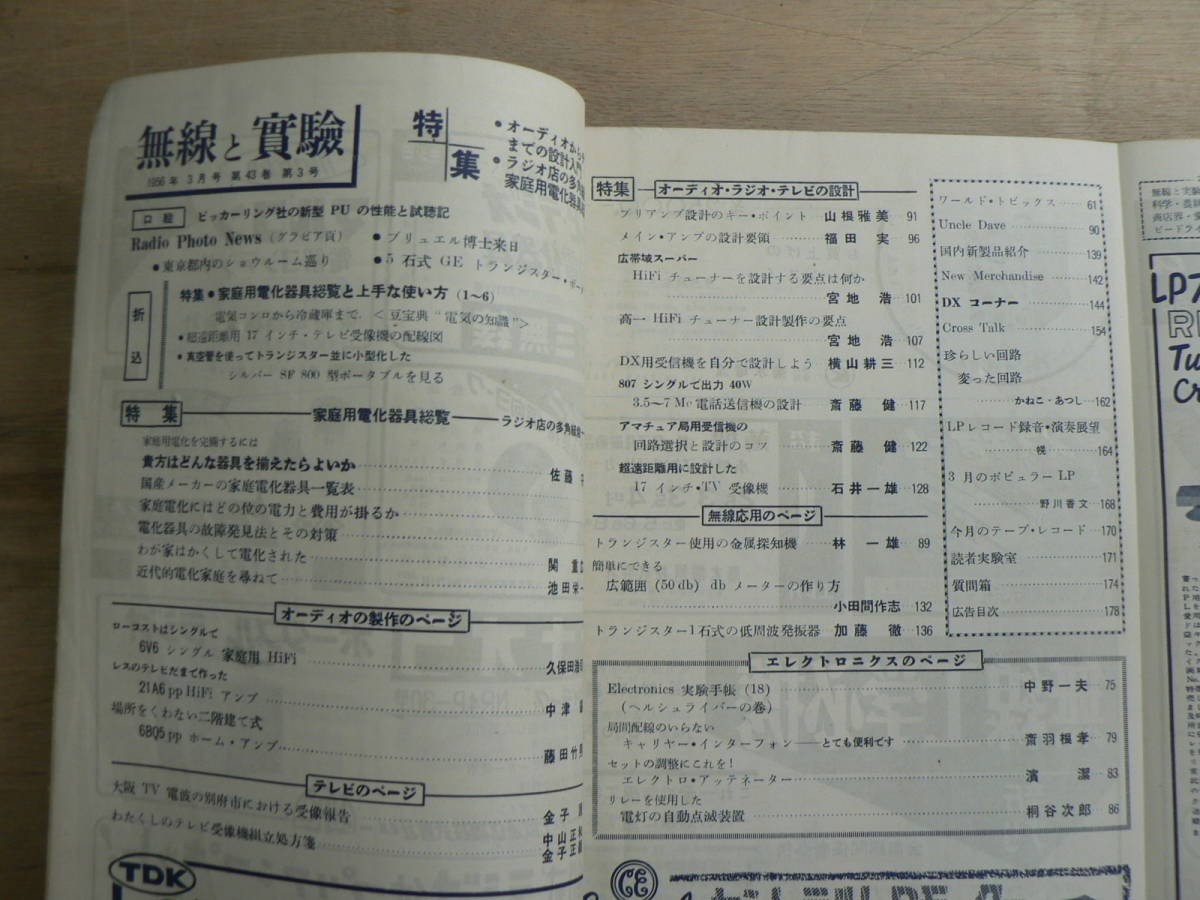 無線と實驗
1956年 3月号 第43巻 第3号
特集
• オーディオから
までの設計入門
• ラジオ店の多角
家庭用電化器具
口絵 ピッカーリング社の新型 PU の性能と試聴記
Radio Photo News (グラビア頁) • ブリュエル博士来日
• 東京都内のショウルーム巡り • 5 石式 GE トランジスター・ポー
折込
特集 • 家庭用電化器具総覧と上手な使い方 (1~6)
電気コンロから冷蔵庫まで. <豆宝典 “電気の知識”>
• 超遠距離用 17 インチ・テレビ受像機の配線図
• 真空管を使ってトランジスター並に小型化した
シルバー SF 800 型ポータブルを見る
特集 家庭用電化器具総覧——ラジオ店の多角経
家庭用電化を完備するには
貴方はどんな器具を揃えたらよいか 佐藤
国産メーカーの家庭電化器具一覧表
家庭電化にはどの位の電力と費用が掛るか
電化器具の故障発見法とその対策
わが家はかくして電化された 関 重
近代的電化家庭を尋ねて 池田栄一
オーディオの製作のページ
ローコストはシングルで
6V6 シングル 家庭用 HiFi 久保田浩
レスのテレビだまで作った
21A6 pp HiFi アンプ 中津
場所をくわない二階建て式
6BQ5 pp ホーム・アンプ 藤田竹
テレビのページ
大阪 TV 電波の別府市における受像報告 金子
わたくしのテレビ受像機組立処方箋 中山正
金子正
TDK
特集 オーディオ・ラジオ・テレビの設計
プリアンプ設計のキー・ポイント 山根雅美 91
メイン・アンプの設計要領 福田 実 96
広帯域スーパー
HiFi チューナーを設計する要点は何か
宮地 浩 101
高一 HiFi チューナー設計製作の要点
宮地 浩 107
DX用受信機を自分で設計しよう 横山耕三 112
807 シングルで出力 40W
3.5~7 Mc 電話送信機の設計 斎藤 健 117
アマチュア局用受信機の
回路選択と設計のコツ 斎藤 健 122
超遠距離用に設計した
17 インチ・TV 受像機 石井一雄 128
無線応用のページ
トランジスター使用の金属探知機 林 一雄 89
簡単にできる
広範囲 (50 db) db メーターの作り方
小田間作志 132
トランジスター1石式の低周波発振器 加藤 徹 136
エレクトロニクスのページ
Electronics 実験手帳 (18) 中野一夫 75
(ヘルシュライバーの巻)
局間配線のいらない
キャリヤー・インターフォン——とても便利です 斎羽根孝 79
セットの調整にこれを!
エレクトロ・アッテネーター 濱 潔 83
リレーを使用した
電灯の自動点滅装置 桐谷次郎 86
ワールド・トピックス 61
Uncle Dave 90
国内新製品紹介 139
New Merchandise 142
DX コーナー 144
Cross Talk 154
珍らしい回路
変った回路
かねこ・あつし 162
LPレコード録音・演奏展望
幌 164
3 月のポピュラー LP
野川香文 168
今月のテープ・レコード 170
読者実験室 171
質問箱 174
広告目次 178
無線と実
科学・農
商店界・
ビードライ
LP7